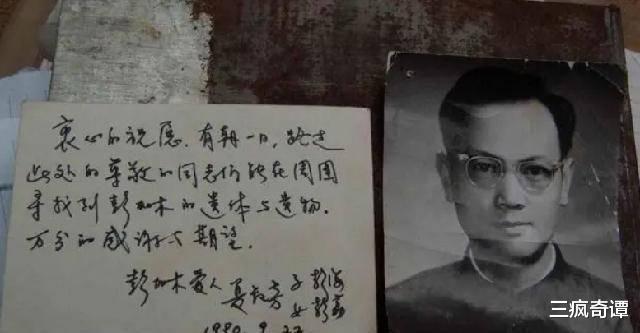 衷心的祝愿,有朝一日,路过
此处的尊敬的同志们能在周围
寻找到彭加木的遗体与遗物.
万分的感谢与期望.
彭加木爱人 夏叔芳 子 彭海
女 彭荔
1980.9.
三疯奇谭